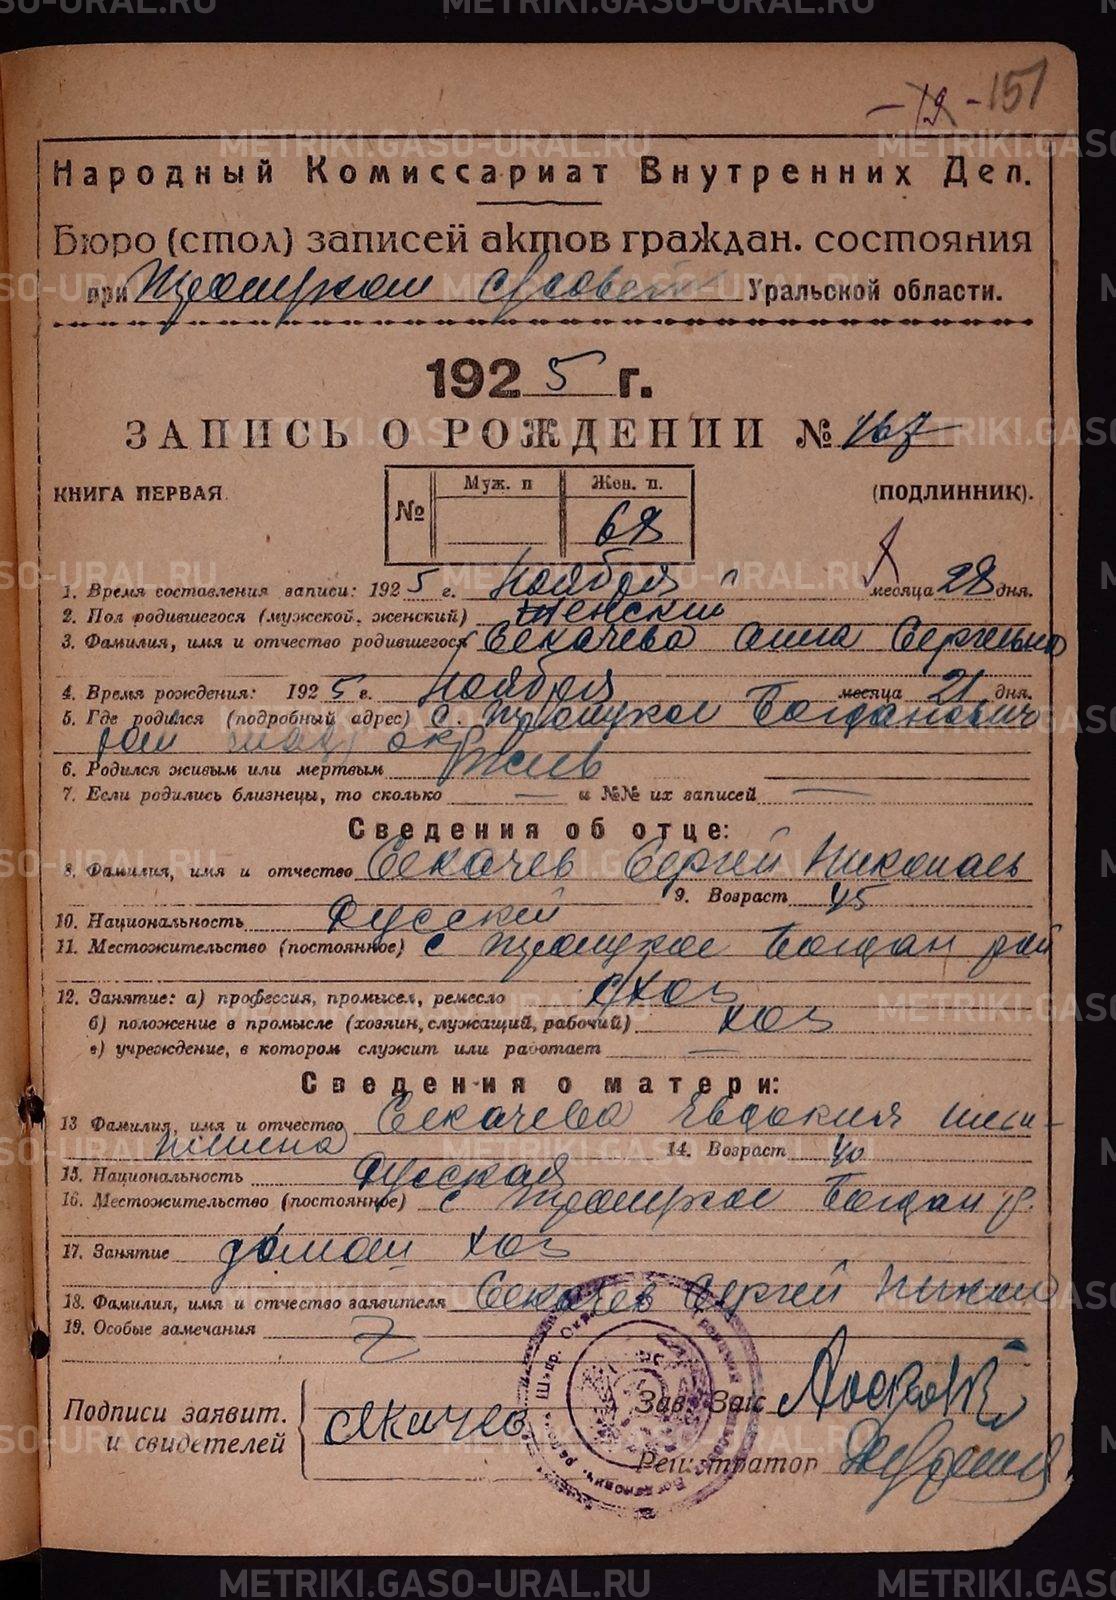 - 19 - 151
Народный Комиссариат Внутренних Дел.
Бюро (стол) записей актов граждан. состояния
при Троицком с/совет Уральской области.
1925 г.
ЗАПИСЬ О РОЖДЕНИИ № 167
КНИГА ПЕРВАЯ. (ПОДЛИННИК).
№ Муж. п Жен. п.
68
1. Время составления записи: 1925 г. Ноября месяца 28 дня.
2. Пол родившегося (мужской, женский) Женский
3. Фамилия, имя и отчество родившегося Секачева Анна Сергеевна
4. Время рождения: 1925 г. Ноября месяца 21 дня.
5. Где родился (подробный адрес) С. Троицкое Богданович
рай шад окр
6. Родился живым или мертвым Жив
7. Если родились близнецы, то сколько — и №№ их записей —
Сведения об отце:
8. Фамилия, имя и отчество Секачев Сергей Николаев
9. Возраст 45
10. Национальность Русский
11. Местожительство (постоянное) с Троицкое Богдан рай
12. Занятие: а) профессия, промысел, ремесло с/хоз
б) положение в промысле (хозяин, служащий, рабочий) хоз
в) учреждение, в котором служит или работает —
Сведения о матери:
13 Фамилия, имя и отчество Секачева Евдокия
14. Возраст 40
15. Национальность Русская
16. Местожительство (постоянное) с Троицкое Богдан р.
17. Занятие домаш хоз
18. Фамилия, имя и отчество заявителя Секачев Сергей
19. Особые замечания
Подписи заявит. и свидетелей
Секачев
Зав. Загс
Регистратор
METRIKI.GASO-URAL.RU